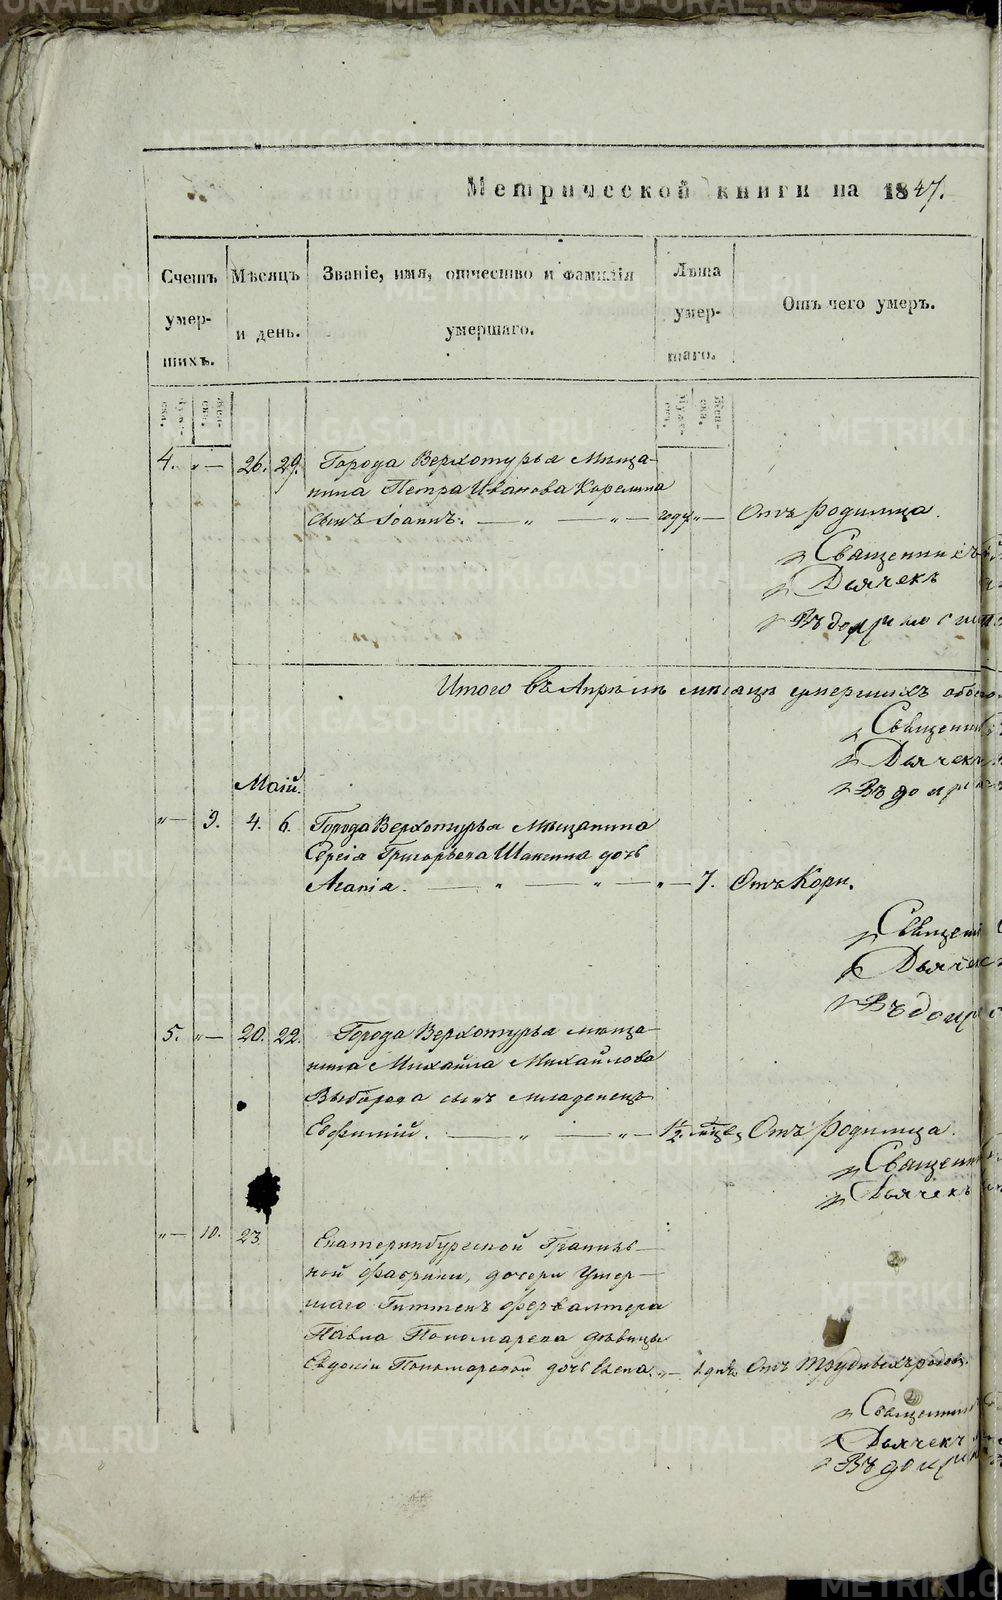 Метрической книги на 1847.
Счетъ умер- шихъ.
Мѣсяцъ и день.
Званіе, имя, отчество и фамилія умершаго.
Лѣта умер- шаго.
Отъ чего умеръ.
4. „ — 26. 29. Города Верхотурья Мѣща-
нина Петра Иванова Карелина
сынъ Іоаннъ. — „ — „ — году „ — Отъ родимца.
Священникъ
Дьячекъ
Итого въ Апрѣлѣ мѣсяцѣ умершихъ обоего
Священни
Дьячекъ
Маій.
„ — 9. 4. 6. Города Верхотурья Мѣщанина
Сергія Григорьева Шангина дочь
Агапія. — „ — „ — „ — 7. Отъ Кори.
Священ
Дьяче
5. „ — 20. 22. Города Верхотурья мѣща-
нина Михаила Михайлова
сынъ младенецъ
Евфимій. — „ — „ — 1½ мѣсец Отъ родимца.
Священни
Дьячекъ
„ — 10. 23. Екатеринбургской Граниль-
ной фабрики, дочери умер-
шаго Гиттенъ фервалтера
Павла Пономарева дѣвицы
Евдокіи Пономаревой дочь Елена. „ — 1 днь Отъ трудныхъ родовъ.
Священни
Дьячекъ
METRIKI.GASO-URAL.RU